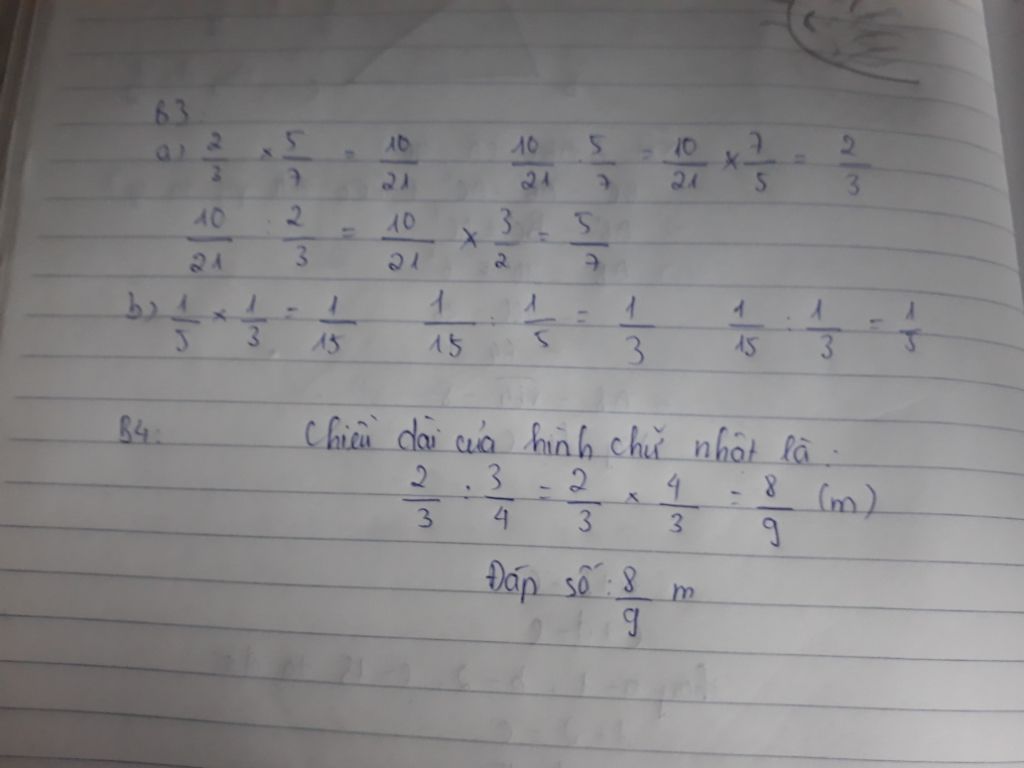 B3
a) 2/3 × 5/7 = 10/21    10/21 : 5/7 = 10/21 × 7/5 = 2/3
10/21 : 2/3 = 10/21 × 3/2 = 5/7
b) 1/5 × 1/3 = 1/15    1/15 : 1/5 = 1/3    1/15 : 1/3 = 1/5
B4: Chiều dài của hình chữ nhật là :
2/3 : 3/4 = 2/3 × 4/3 = 8/9 (m)
Đáp số : 8/9 m